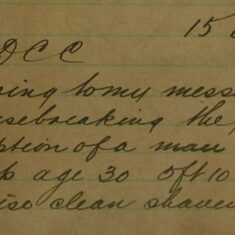 15
DCC
ing to my mess
sebreaking the
ption of a man
age 30 5ft 10
ise clean shave